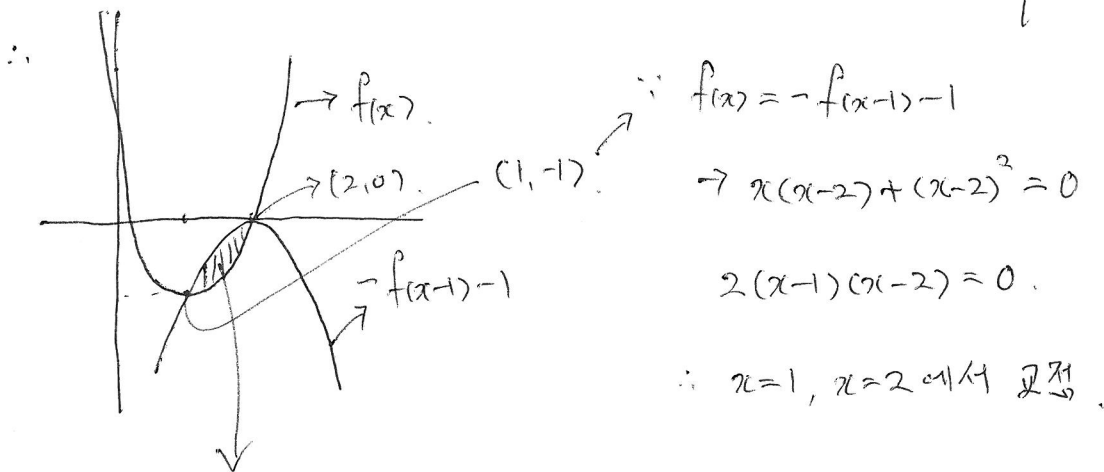 ∴
→ f(x).
→ (2,0).
(1,-1).
-f(x-1)-1
∵ f(x) = -f(x-1)-1
→ x(x-2)+(x-2)² = 0
2(x-1)(x-2) = 0.
∴ x=1, x=2 에서 교점.